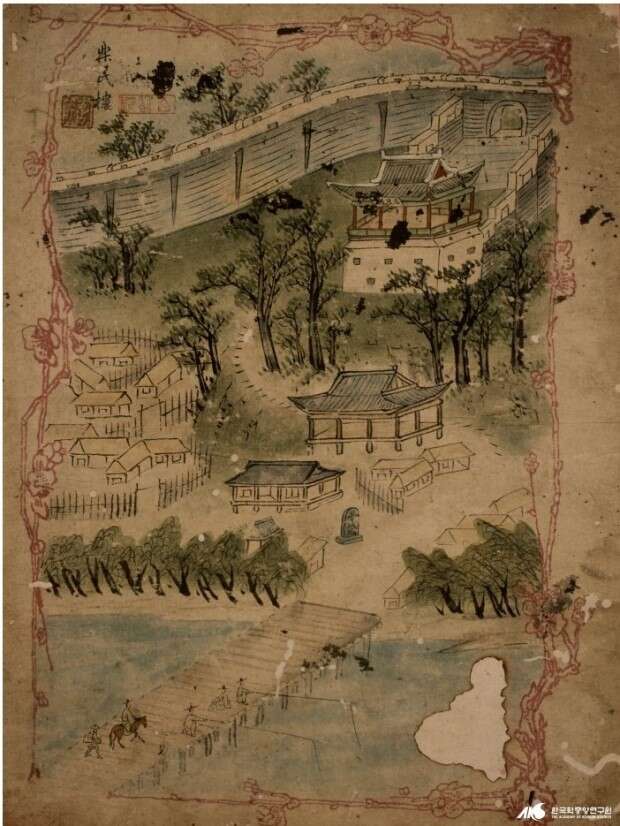 樂民樓
AKS 한국학중앙연구원
THE ACADEMY OF KOREAN STUDIES